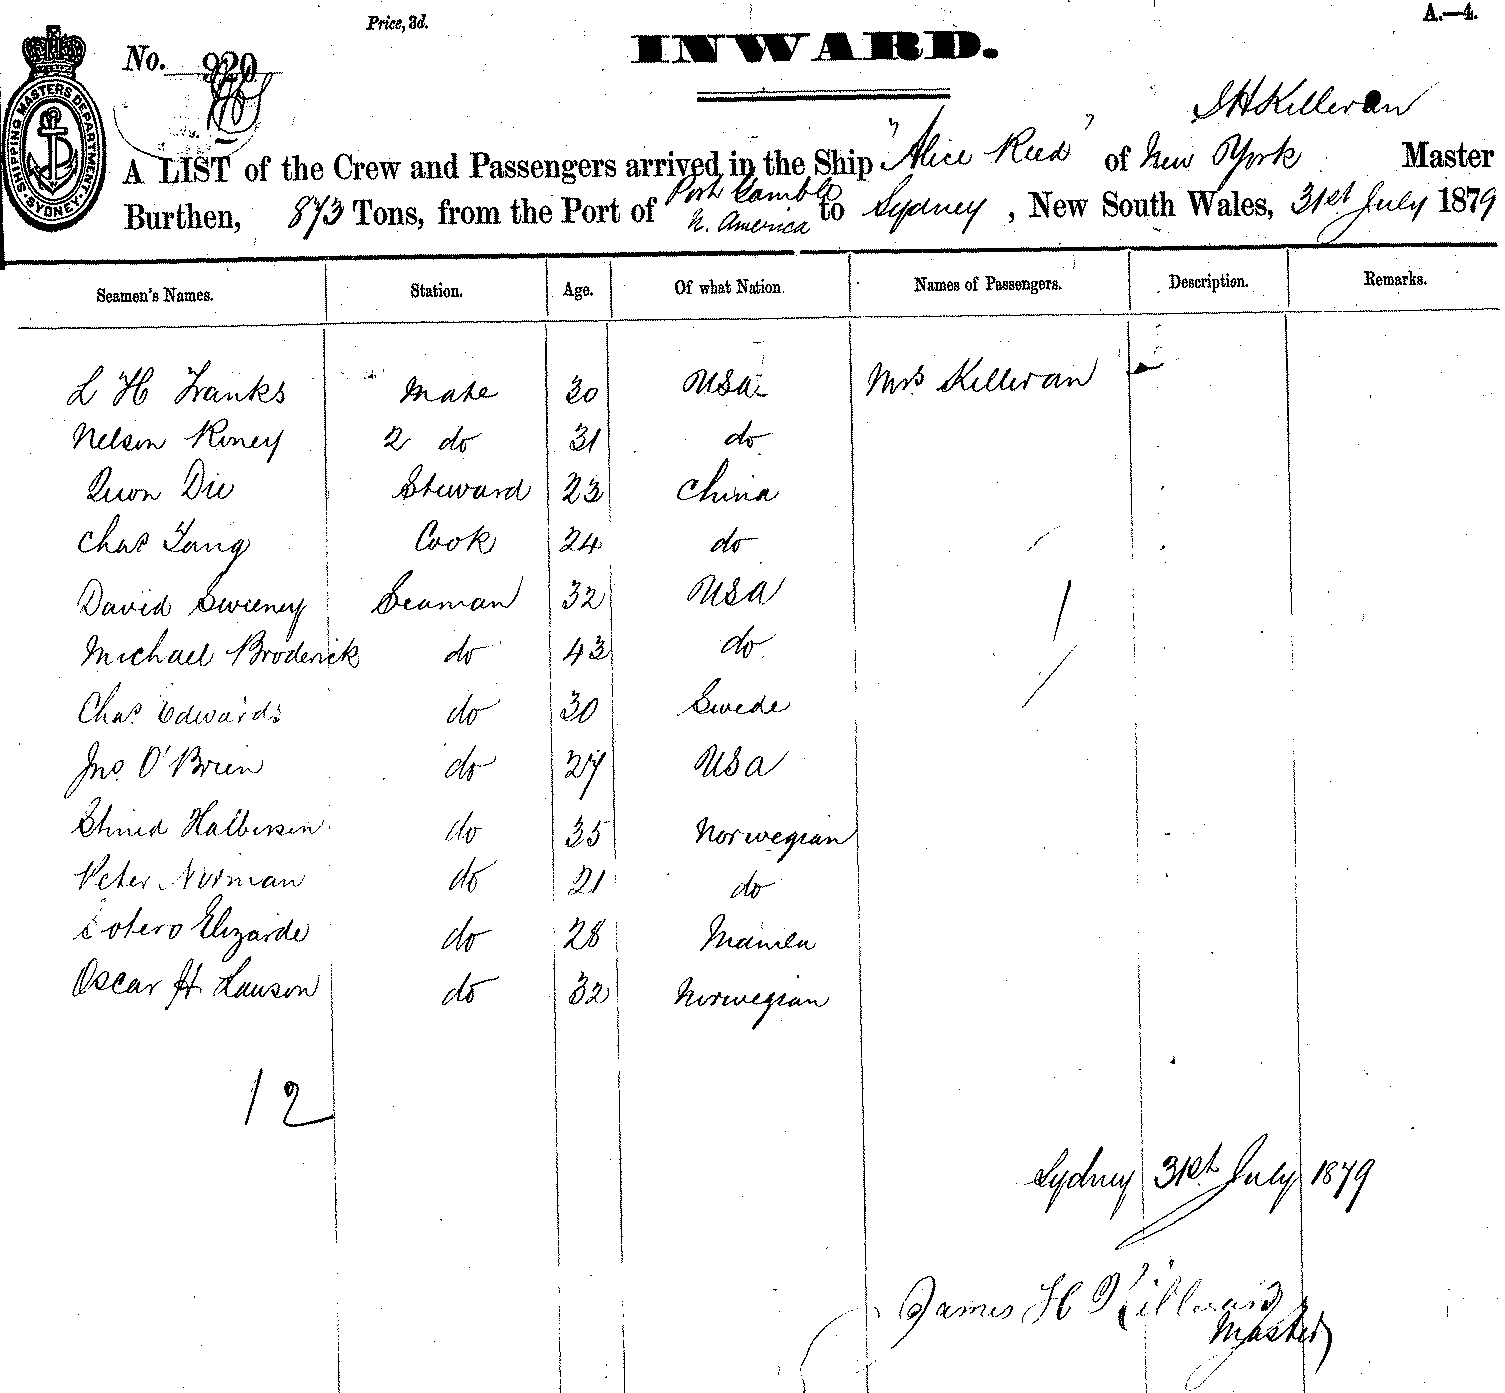 Price, 3d.
A.—4.
No. 920
INWARD.
SHIPPING MASTERS DEPARTMENT. SYDNEY.
J H Killeran
A LIST of the Crew and Passengers arrived in the Ship "Alice Reed" of New York Master
Burthen, 873 Tons, from the Port of Port Gamble N. America to Sydney, New South Wales, 31st July 1879
Seamen's Names. Station. Age. Of what Nation. Names of Passengers. Description. Remarks.
L H Franks Mate 30 USA Mrs Killeran
Nelson Roney 2 do 31 do
Quon Die Steward 23 China
Chas Tang Cook 24 do
David Sweeney Seaman 32 USA
Michael Broderick do 43 do
Chas Edwards do 30 Swede
Jno. O'Brien do 27 USA
Halbersen do 35 Norwegian
Peter Norman do 21 do
Sotero Elizarde do 28 Manila
Oscar H Hanson do 32 Norwegian
12
Sydney 31st July 1879
James H Killeran
Master